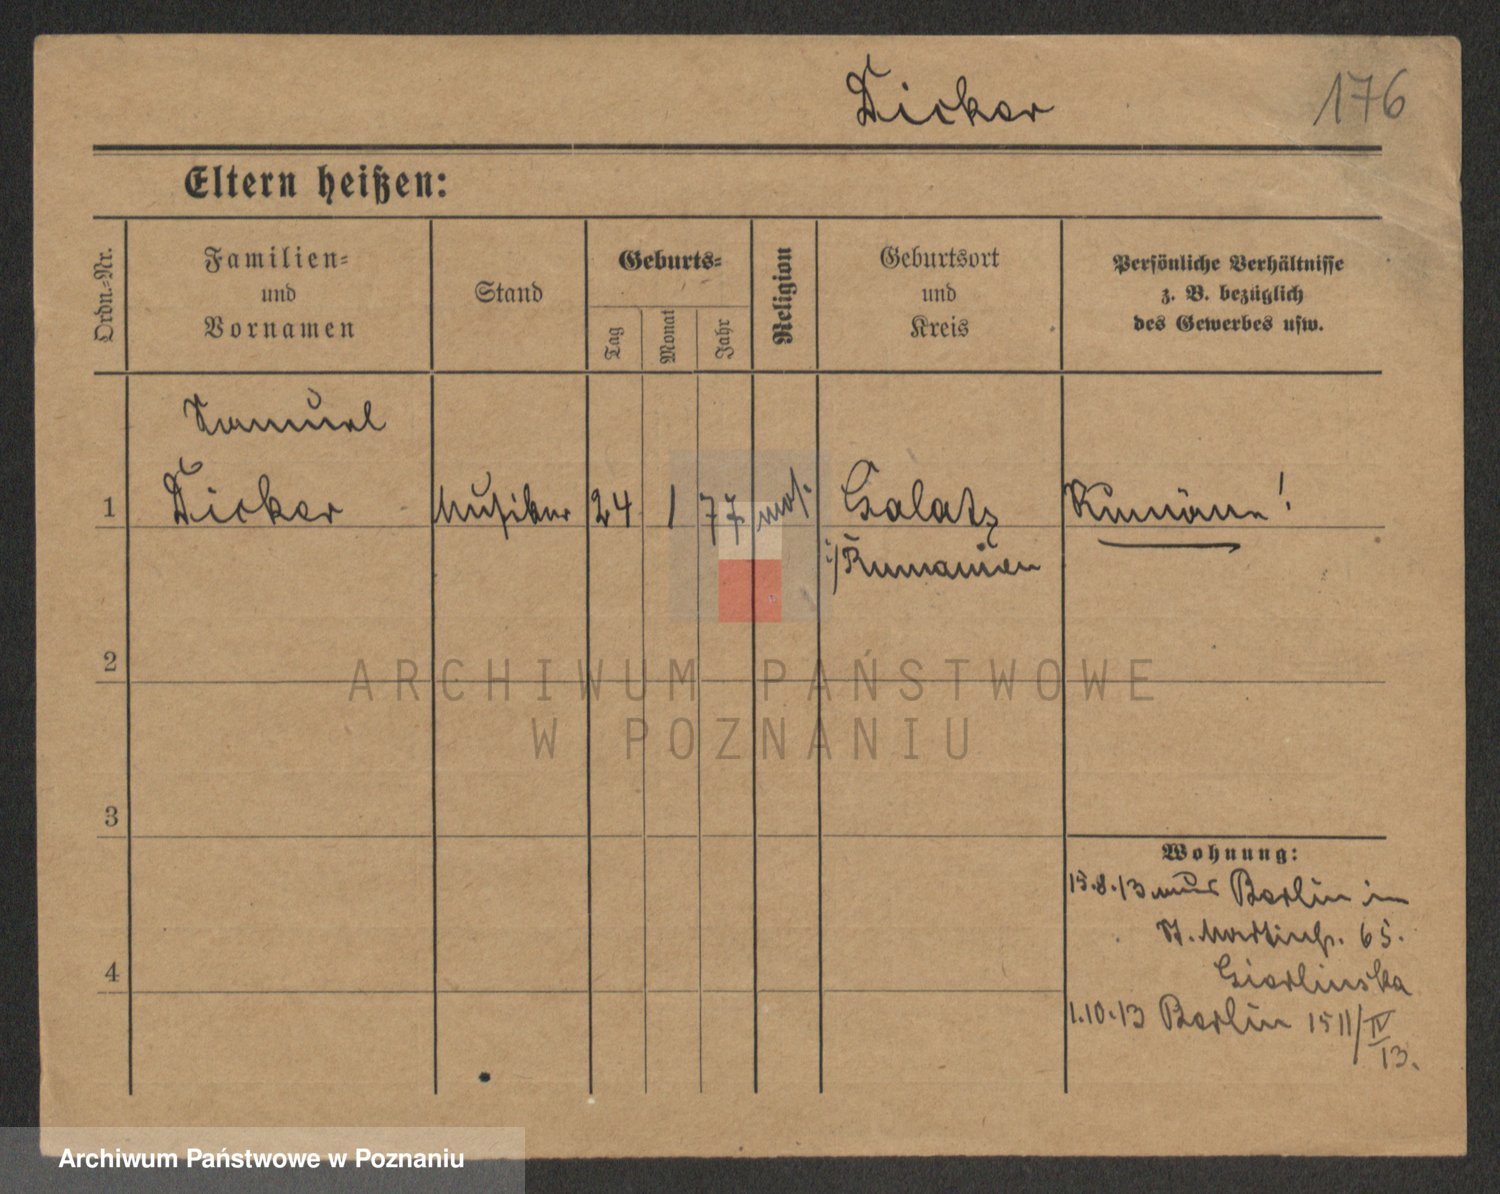 Dicker
176
Eltern heißen:
Ordn.-Nr.
Familien-
und
Vornamen
Stand
Geburts-
Tag
Monat
Jahr
Religion
Geburtsort
und
Kreis
Persönliche Verhältnisse
z. B. bezüglich
des Gewerbes usw.
Samuel
1 Dicker Musiker 24 1 77 mos. Galatz Rumäne!
i/Rumänien
2
ARCHIWUM PAŃSTWOWE
W POZNANIU
3
Wohnung:
15.8.13 aus Berlin in
St. Martinstr. 65.
4
1.10.13 Berlin 1511/IV
13.
Archiwum Państwowe w Poznaniu